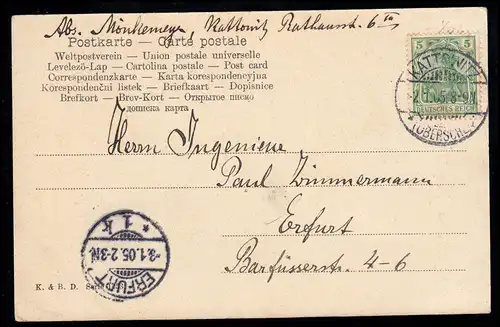 Abs. Mönkemeyer, Kattowitz Rathausstr. 6
Postkarte — Carte postale
Weltpostverein — Union postale universelle
Levelező-Lap — Cartolina postale — Post card
Correspondenzkarte — Karta korespondencyjna
Korespondenční listek — Briefkaart — Dopisnice
Brefkort — Brev-Kort — Открытое писмо
дописна карта
5 5
DEUTSCHES REICH
KATTOWITZ
(OBERSCHL.)
Herrn Ingenieur
Paul Zimmermann
Erfurt
Barfüsserstr. 4-6
* 1 k
-3.1.05.2-3N.
ERFURT
K. & B. D.